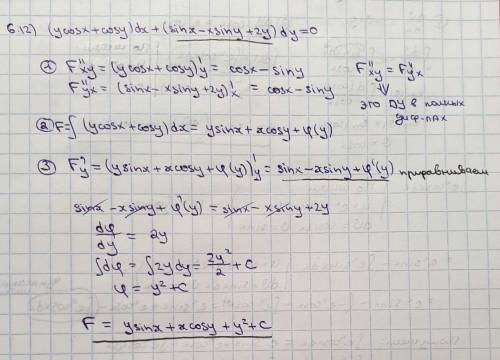 6.12) (ycosx+cosy)dx+(sinx-xsiny+2y)dy=0
① F''xy=(ycosx+cosy)'y = cosx-siny F''xy = F''yx
F''yx = (sinx-xsiny+2y)'x = cosx-siny ⇓
это ДУ в полных
диф-лах
② F=∫(ycosx+cosy)dx=ysinx+xcosy+φ(y)
③ F'y=(ysinx+xcosy+φ(y))'y=sinx-xsiny+φ'(y) приравниваем
sinx-xsiny+φ'(y)=sinx-xsiny+2y
dφ/dy = 2y
∫dφ = ∫2ydy = 2y²/2 + C
φ = y²+C
F = ysinx+xcosy+y²+C